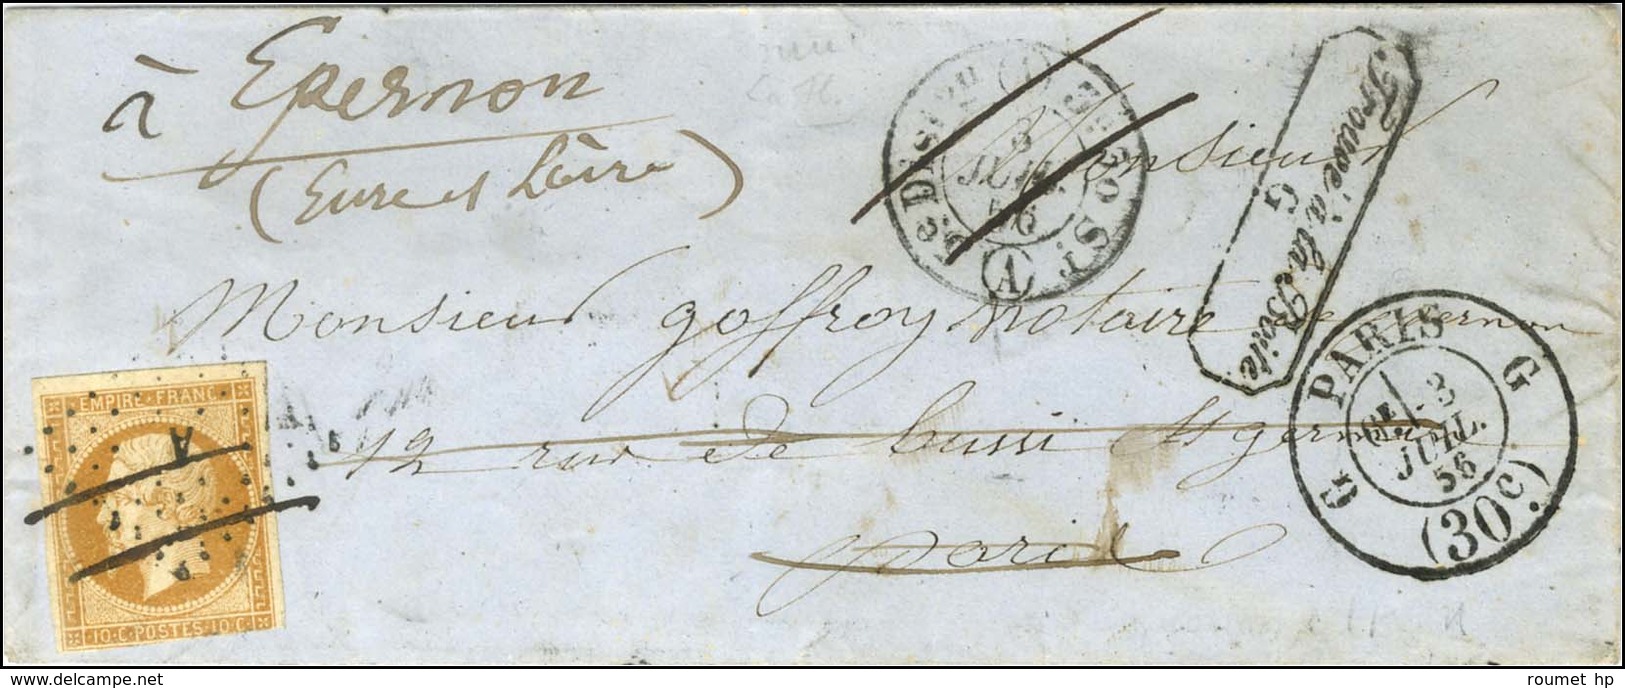 à Epernon
(Eure et Loire)
Monsieur
Monsieur Goffroy notaire
12 rue de bussi St germain
paris
Trouvé à la Boite
G
3
JUIL.
56
(1)
G PARIS G
6E 3
JUIL.
56
(30c.)
EMPIRE FRANC.
A
10·C·POSTES·10·C·
roumet hp